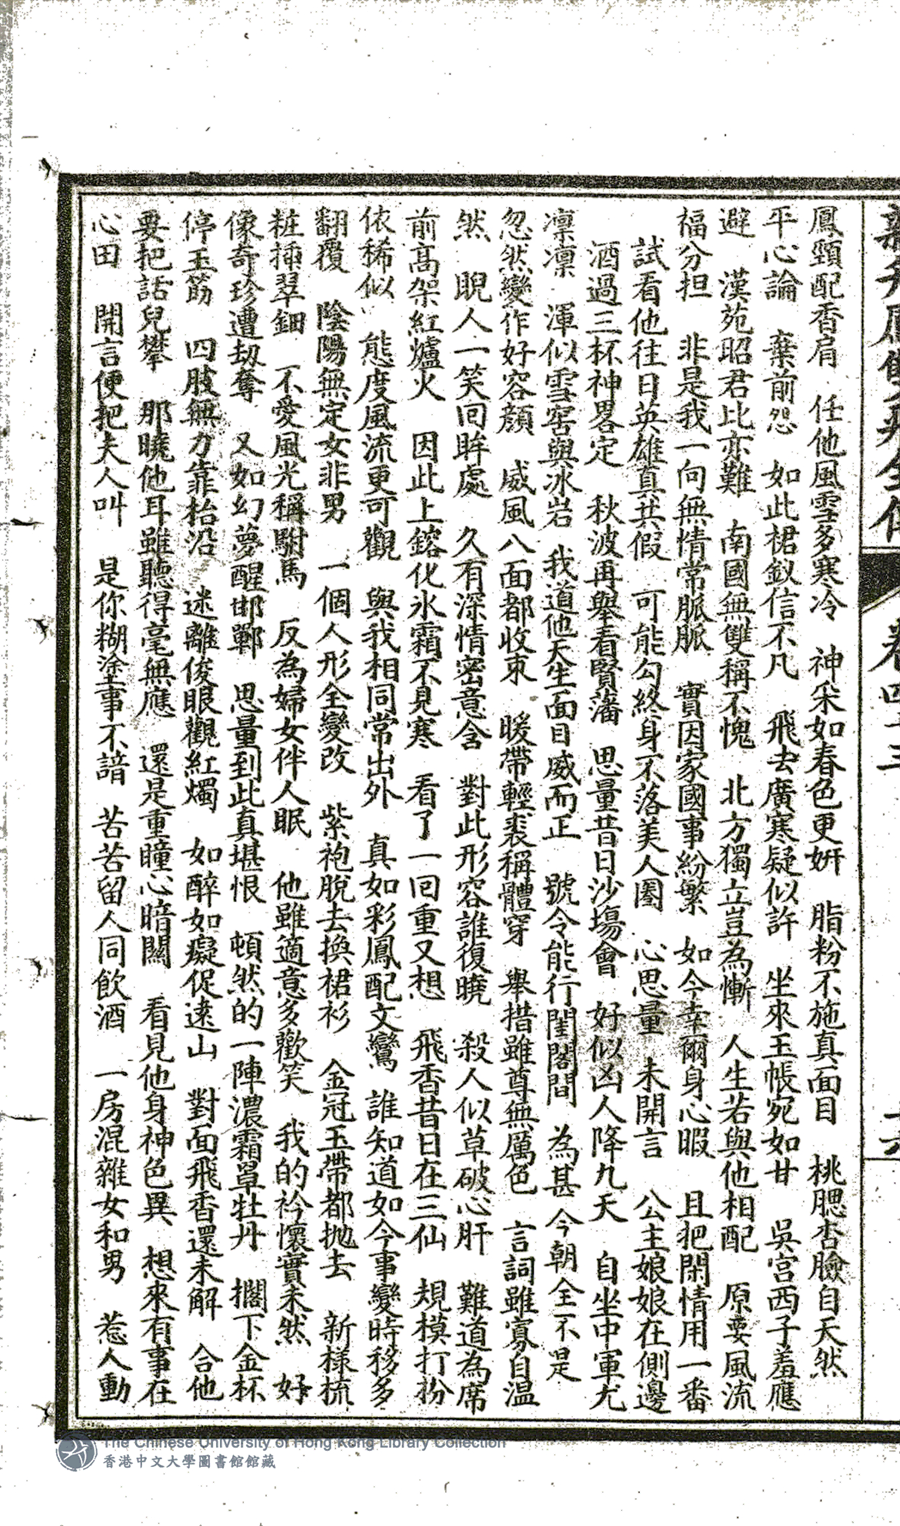 鳳頸配香肩　任他風雪多寒冷　神采如春色更妍　脂粉不施真面目　桃腮杏臉自天然
平心論　棄前怨　如此裙釵信不凡　飛去廣寒疑似許　坐來玉帳宛如甘　吳宮西子羞應
避　漢苑昭君比亦難　南國無雙稱不愧　北方獨立豈為慚　人生若與他相配　原要風流
福分担　非是我一向無情常脈脈　實因家國事紛繁　如今幸爾身心暇　且把閑情用一番
試看他往日英雄真共假　可能勾終身不落美人圈　心思量　未開言　公主娘娘在側邊
酒過三杯神畧定　秋波再舉看賢藩　思量昔日沙塲會　好似凶人降九天　自坐中軍尤
凛凛　渾似雪窖與冰岩　我道他天生面目威而正　號令能行閨閣間　為甚今朝全不是
忽然變作好容顏　威風八面都收束　暖帶輕裘稱體穿　舉措雖尊無厲色　言詞雖寡自溫
然　睨人一笑回眸處　久有深情密意含　對此形容誰復曉　殺人似草破心肝　難道為席
前高架紅爐火　因此上鎔化氷霜不見寒　看了一回重又想　飛香昔日在三仙　規模打扮
依稀似　態度風流更可觀　與我相同常出外　真如彩鳳配文鸞　誰知道如今事變時移多
翻覆　陰陽無定女非男　一個人形全變改　紫袍脫去換裙衫　金冠玉帶都拋去　新樣梳
粧插翠鈿　不愛風光稱駙馬　反為婦女伴人眠　他雖適意多歡笑　我的衿懷實未然　好
像奇珍遭刼奪　又如幻夢醒邯鄲　思量到此真堪恨　頓然的一陣濃霜罩牡丹　擱下金杯
停玉筯　四肢無力靠枱沿　迷離俊眼觀紅燭　如醉如癡促遠山　對面飛香還未解　合他
要把話兒攀　那曉他耳雖聽得毫無應　還是重瞳心暗關　看見他身神色異　想來有事在
心田　開言便把夫人叫　是你糊塗事不諳　苦苦留人同飲酒　一房混雜女和男　惹人動
卷四十三
The Chinese University of Hong Kong Library Collection
香港中文大學圖書館館藏